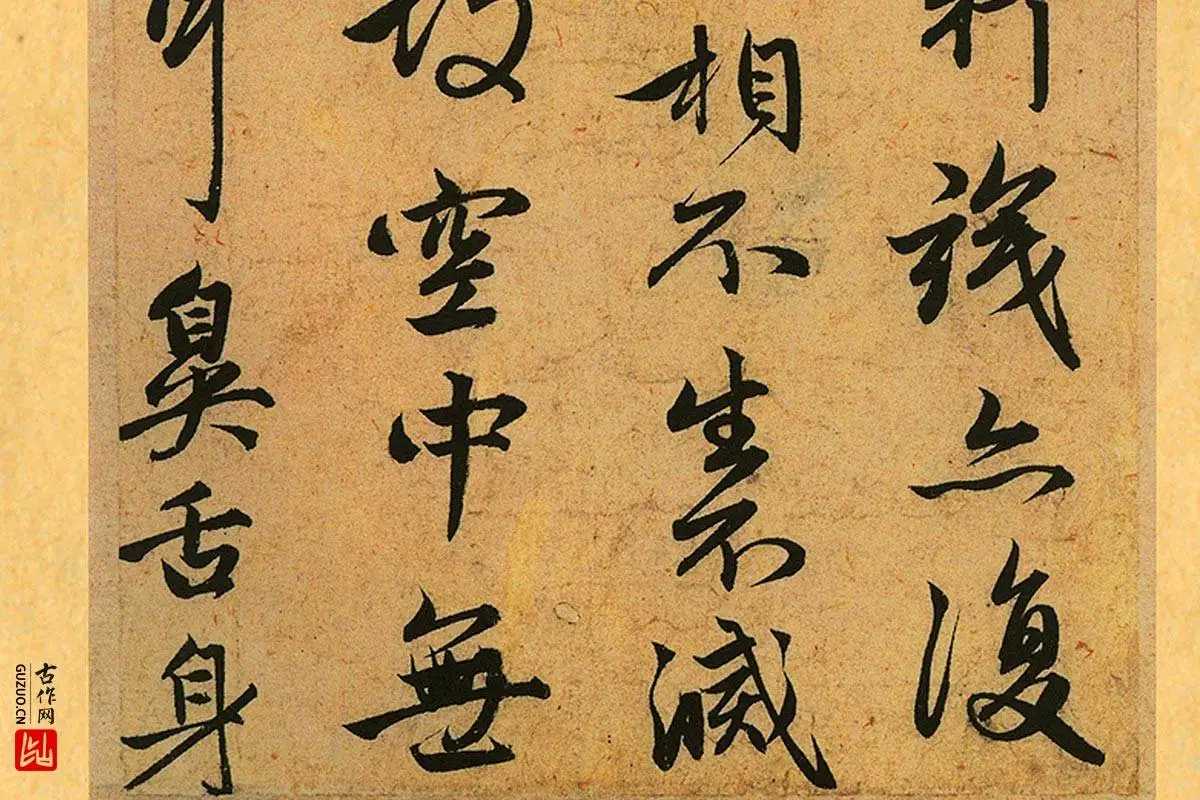 行識亦復
相不生不滅
故空中無
耳鼻舌身
古作网
GUZUO.CN